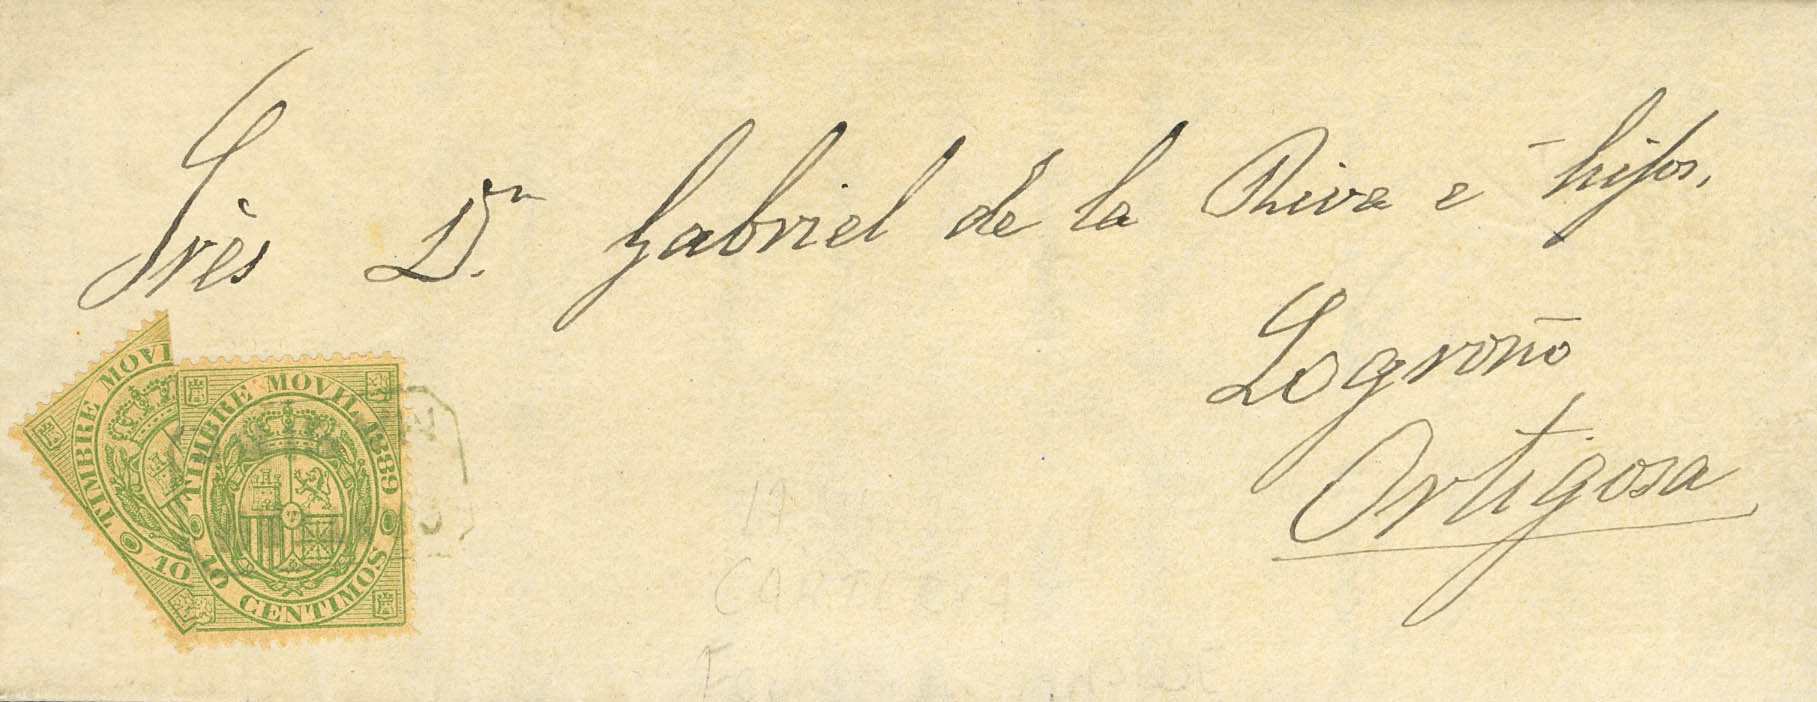 Srès Dn. Gabriel de la Riva e hijos,
Logroño
Ortigosa
TIMBRE MOVI
10
TIMBRE MOVIL 1889
10 CENTIMOS
17
CARTERIA